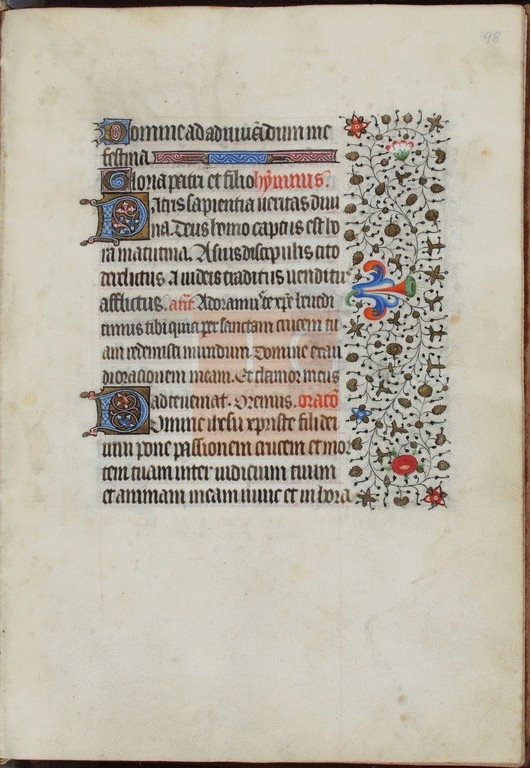 98
Domine ad adiuuādum me
festina.
Gloria patri et filio hymnus.
Patris sapientia ueritas diui
na. Deus homo captus est ho
ra matutina. A suis discipulis cito
derelictus. a iudeis traditus uenditus
afflictus. ant̄. Adoramus te xp̄e benedi
cimus tibi quia per sanctam crucem tu
am redemisti mundum. Domine exau
di orationem meam. Et clamor meus
ad te ueniat. Oremus. oratō
Domine ihesu xpriste fili dei
uiui pone passionem crucem et mor
tem tuam inter iudicium tuum
et animam meam nunc et in hora